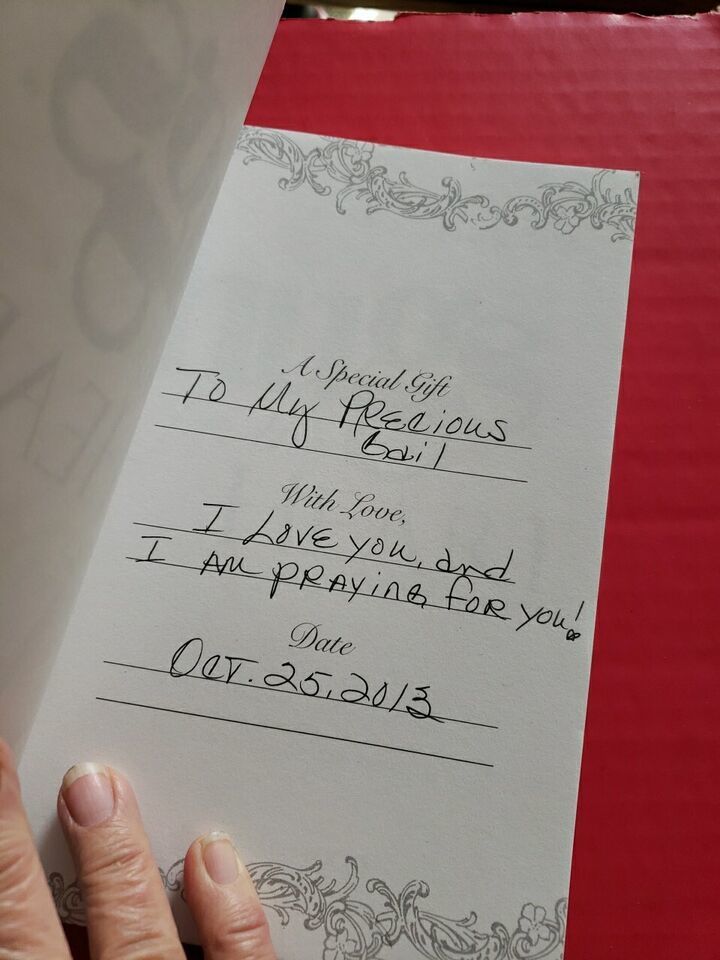 A Special Gift
To My Precious
Gail
With Love,
I Love you, and
I Am praying for you!
Date
Oct. 25, 2013